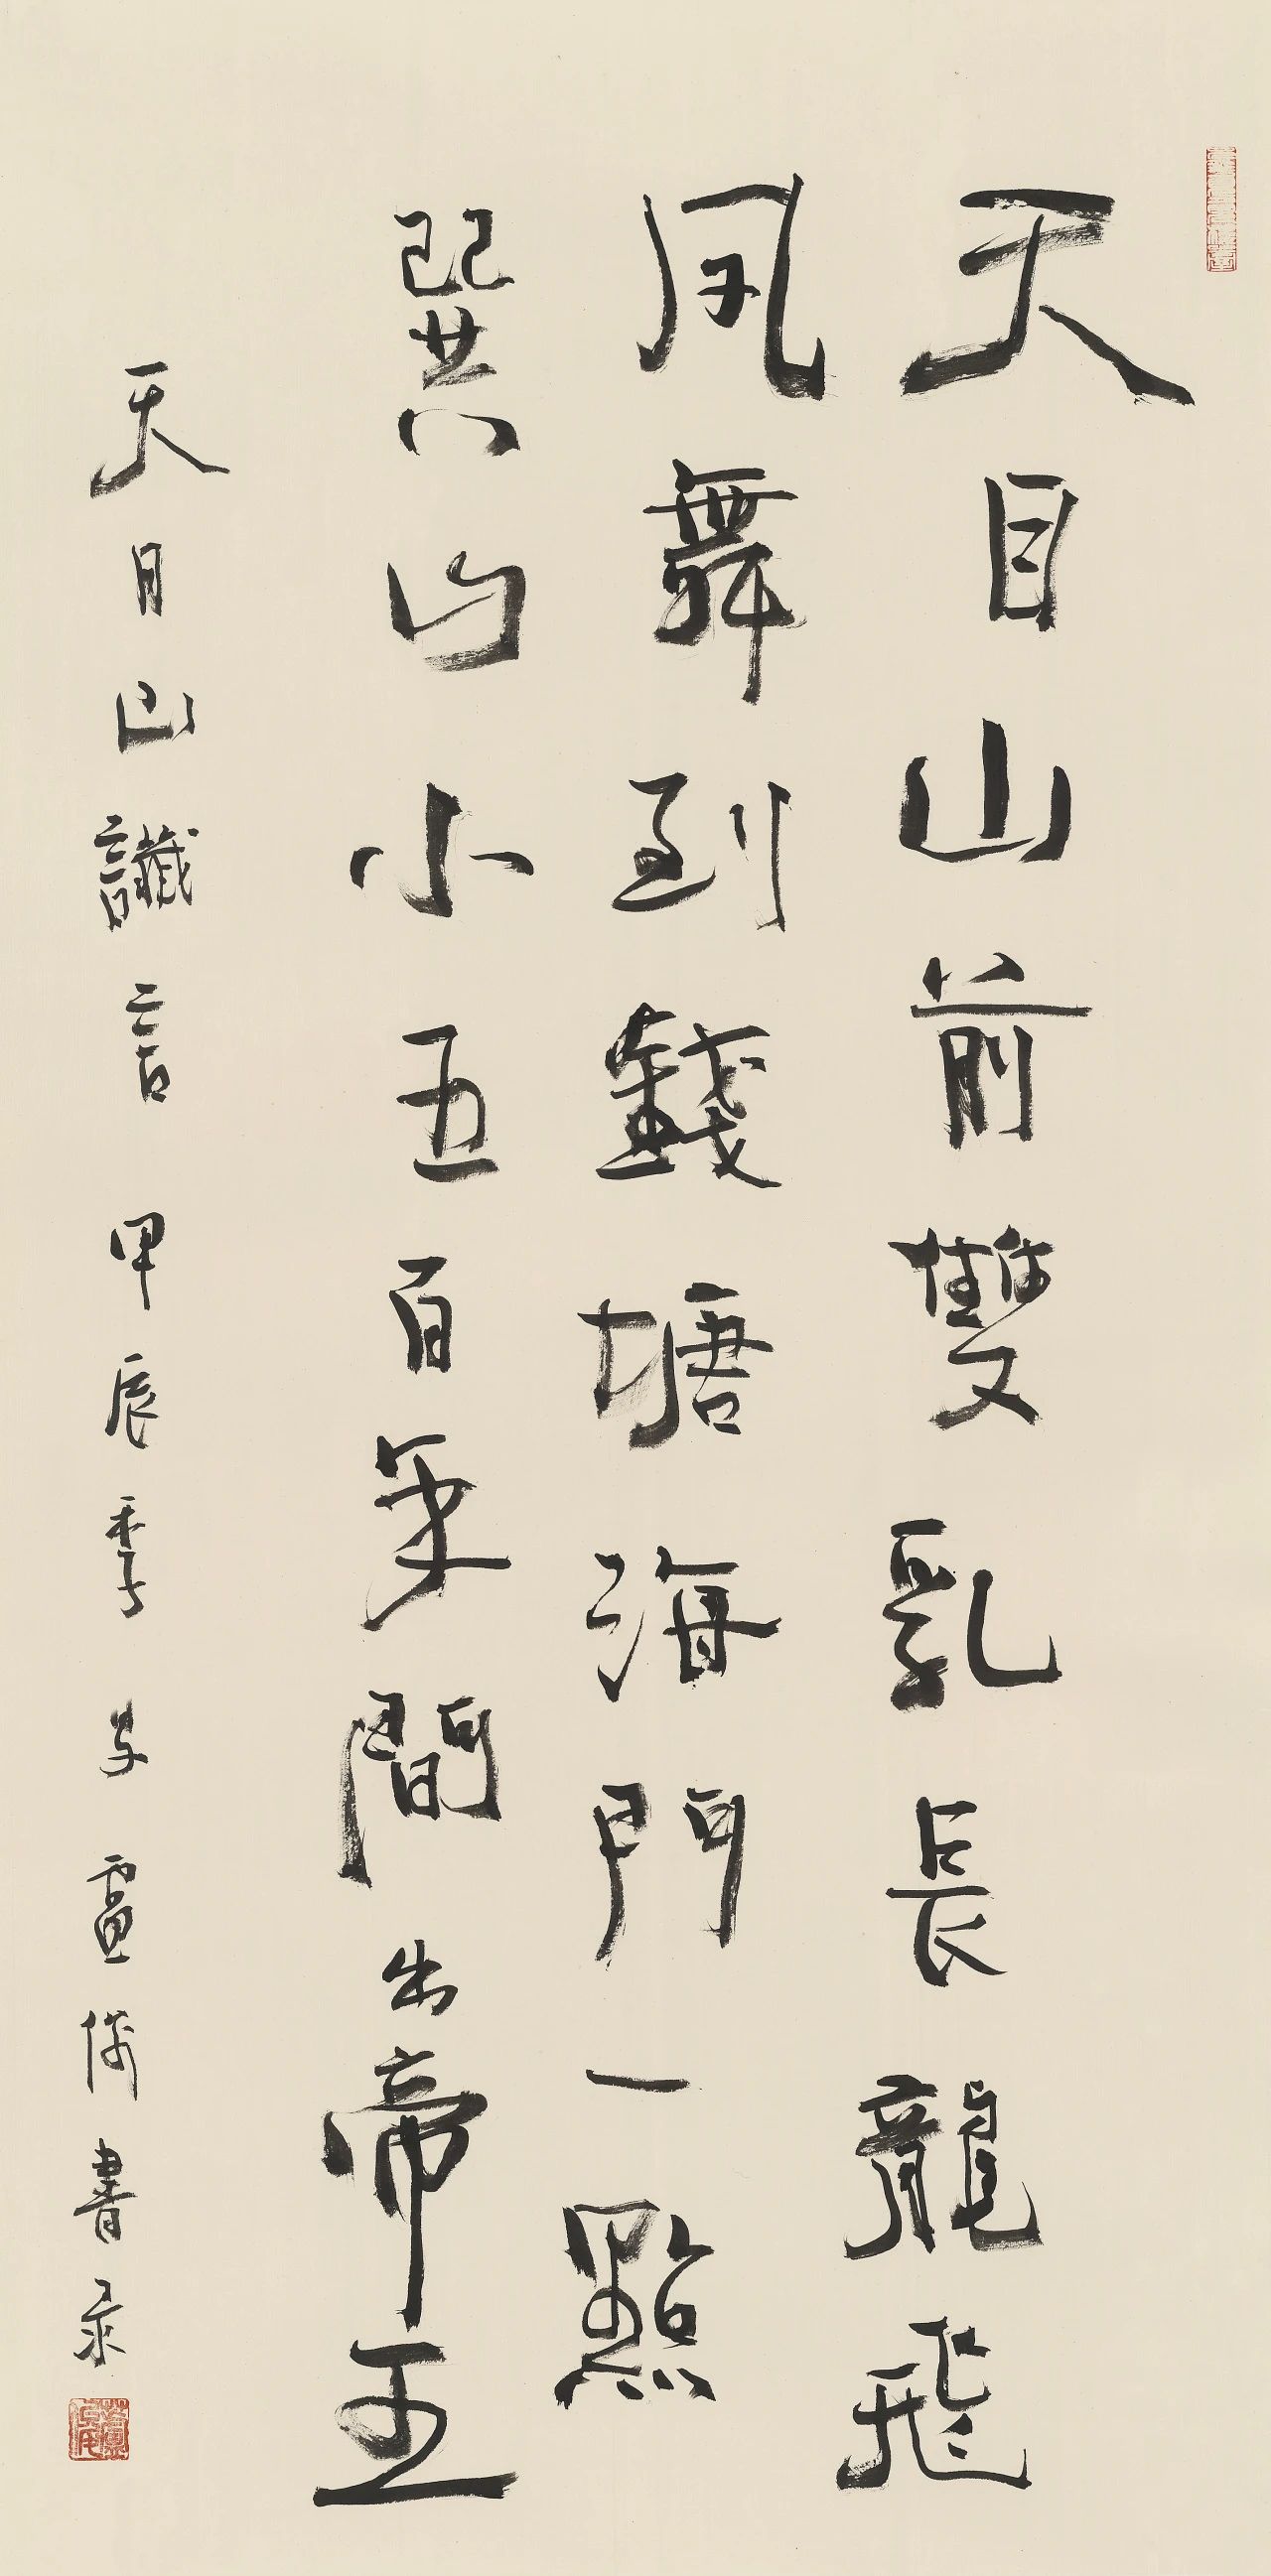 天目山前雙乳長龍飛
凤舞到錢塘海門一點
巽山小五百年間出帝王
天目山讖言 甲辰季 盧 書录